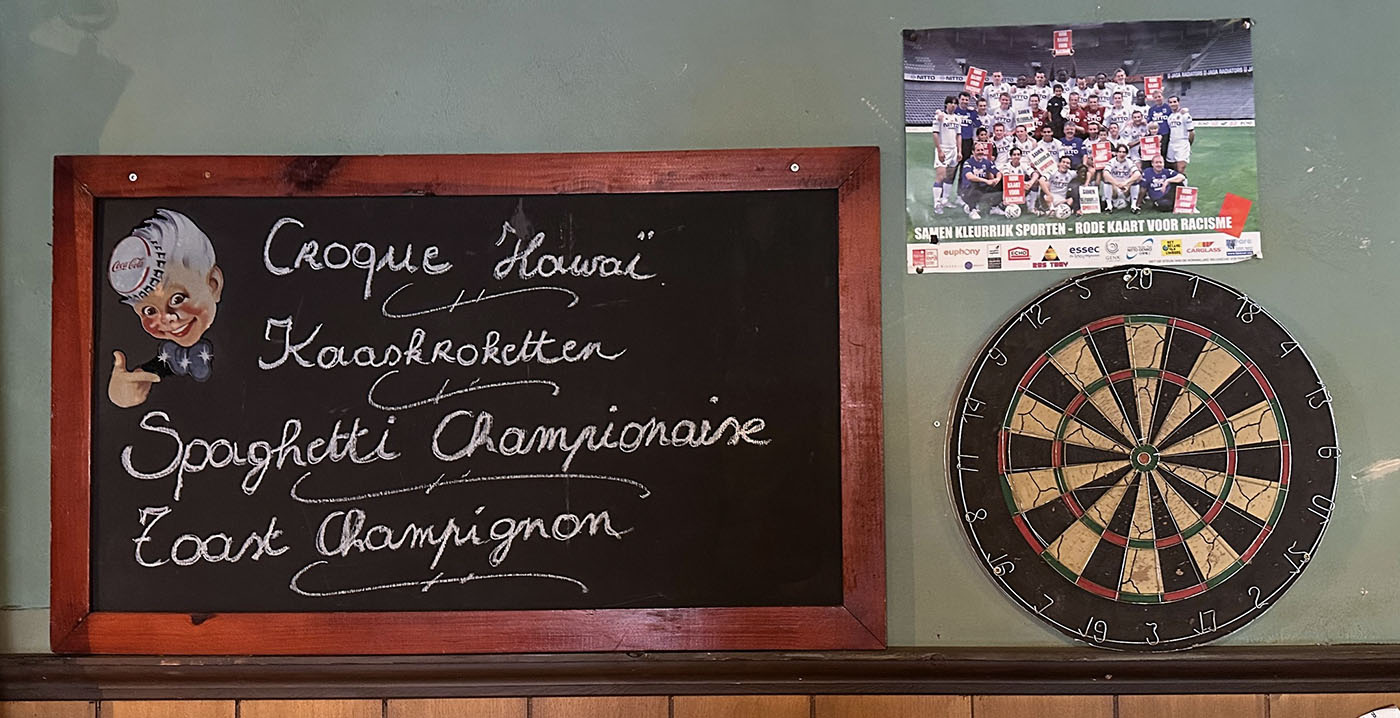 Croque Hawaï
Kaaskroketten
Spaghetti Championaise
Toast Champignon
Coca-Cola
RODE KAART VOOR RACISME
NITTO
JAGA RADIATORS
SAMEN KLEURRIJK SPORTEN
SAMEN KLEURRIJK SPORTEN - RODE KAART VOOR RACISME
euphony
ECHO
essec
GENK
CARGLASS
20 1 18 4 13 6 10 15 2 17 3 19 7 16 8 11 14 9 12 5